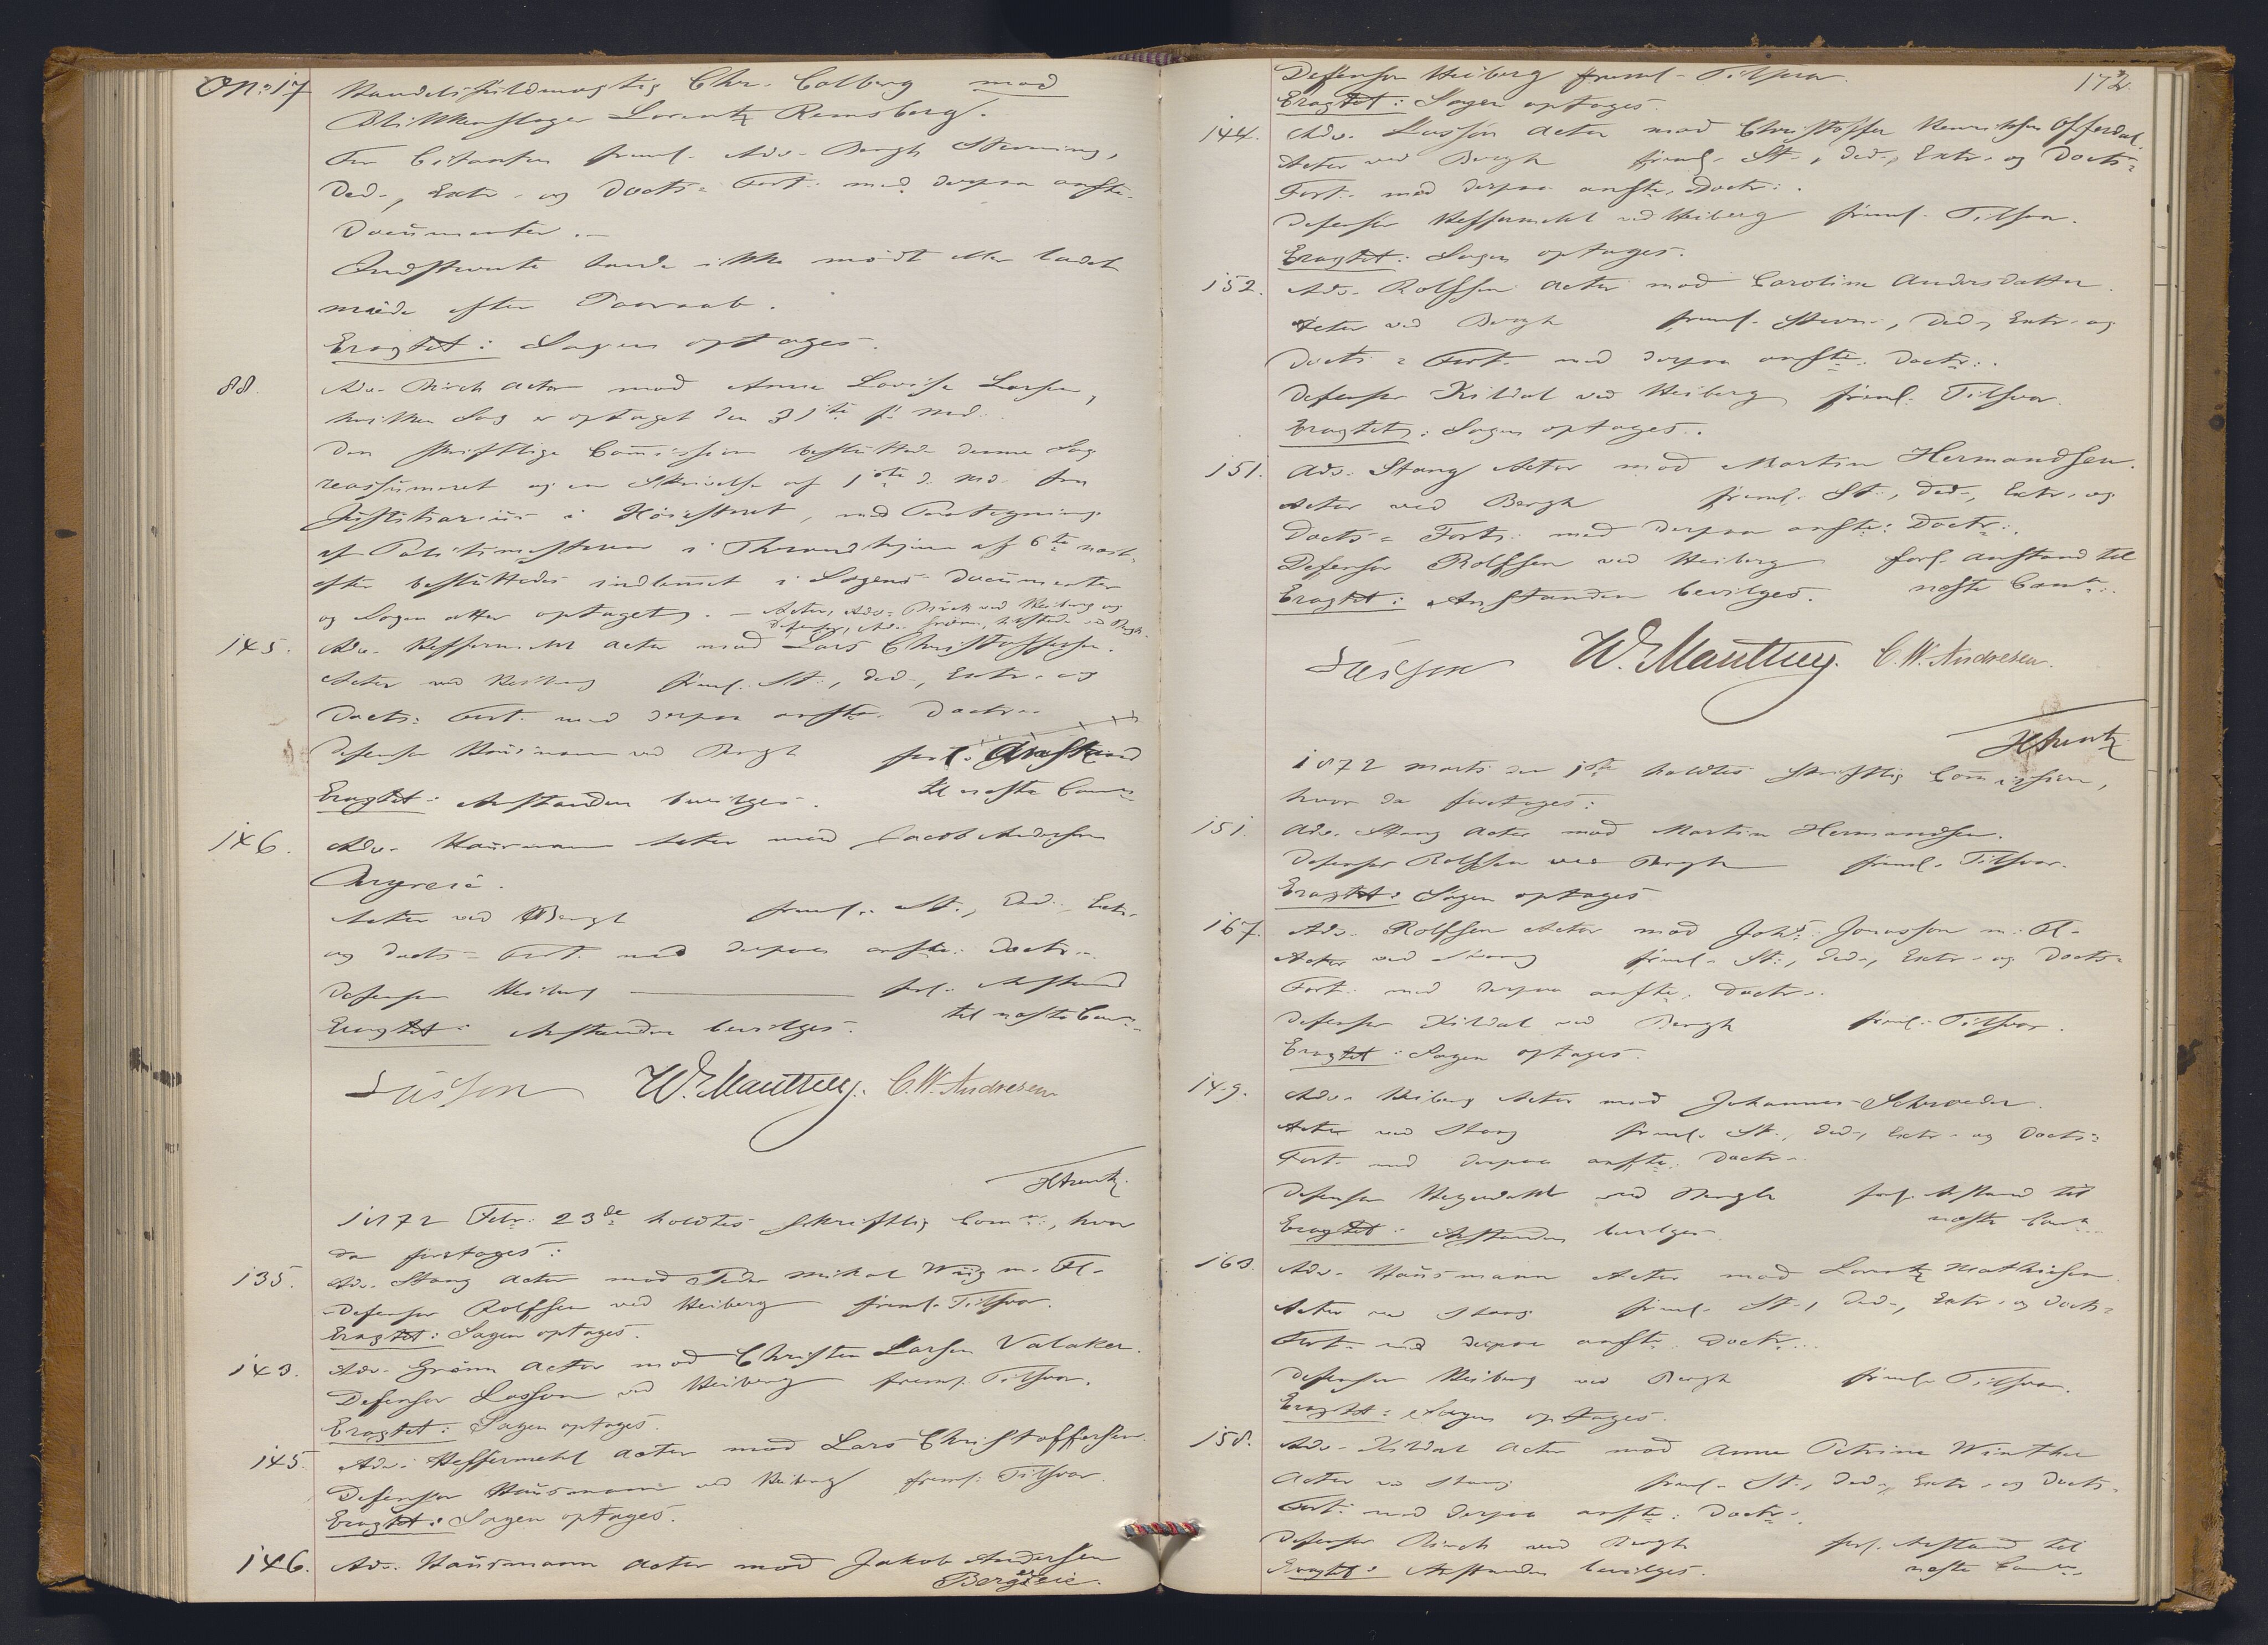 O No 17 Handelsfuldmægtig Chr. Colberg mod
Blikkenslager Lorentz Remsberg.
For Citanten freml. Adv. Bergh Stevning,
Ded-, Extr. og Docts= Forts. med derpaa anfte.
Documenter. -
Indstevnte havde ikke mødt eller ladet
møde efter Paaraab.
Eragtet: Sagen optages.
88. Adv. Birch Actor mod Anne Lovise Larsen,
hvilken Sag er optaget den 31te f. Md.
Den skriftlige Commission besluttede denne Sag
reassumeret og en Skrivelse af 1ste d. Md. fra
Justitiarius i Höiesteret, med Paategning
af Politimesteren i Throndhjem af 6te næst-
efter besluttedes indlemmet i Sagens Documenter
og Sagen atter optaget. - Actor, Adv. Birch ved Heiberg og
Defensor, Adv. ved Bergh.
145. Adv. Heffermehl Actor mod Lars Christoffersen.
Actor ved Heiberg freml. St., Ded-, Extr. og
Docts= Fort. med derpaa anfte. Doctr.
Defensor Hausmann ved Bergh forl. Anstand
til næste Comn.
Eragtet: Anstanden bevilges.
146. Adv. Hausmann Actor mod Jacob Andersen
Actor ved Bergh freml. St., Ded., Extr.
og Docts= Fort. med derpaa anfte. Doctr.
Defensor Heiberg forl. Anstand
til næste Comn.
Eragtet: Anstanden bevilges.
Lasson W. Manthey. C.W. Andresen
1872 Febr. 23de holdtes skriftlig Comn., hvor
da foretoges:
135. Adv. Stang Actor mod Peder Mikal Wiig m. Fl.
Defensor Rolfsen ved Heiberg freml. Tilsvar.
Eragtet: Sagen optages.
143. Adv. Grönn Actor mod Christen Larsen Valaker.
Defensor Lasson ved Heiberg freml. Tilsvar.
Eragtet: Sagen optages.
145. Adv. Heffermehl Actor mod Lars Christoffersen.
Defensor Hausmann ved Heiberg freml. Tilsvar.
Eragtet: Sagen optages.
146. Adv. Hausmann Actor mod Jakob Andersen
172.
Defensor Heiberg freml. Tilsvar.
Eragtet: Sagen optages.
144. Adv. Lasson Actor mod Christoffer Henriksen Offerdal.
Actor ved Bergh freml. St., Ded-, Extr. og Docts=
Fort. med derpaa anfte. Doctr.
Defensor Heffermehl ved Heiberg freml. Tilsvar.
Eragtet: Sagen optages.
152. Adv. Rolfsen Actor mod Caroline Andersdatter.
Actor ved Bergh freml. Stevn., Ded-, Extr. og
Docts= Fort. med derpaa anfte. Doctr.
Defensor Kildal ved Heiberg freml. Tilsvar.
Eragtet: Sagen optages.
151. Adv. Stang Actor mod Martin Hermandsen.
Actor ved Bergh freml. St., Ded-, Extr. og
Docts= Forts. med derpaa anfte. Doctr.
Defensor Rolfsen ved Heiberg forl. Anstand til
næste Comn.
Eragtet: Anstanden bevilges.
Lasson W. Manthey. C.W. Andresen.
1872 Marts den 1ste holdtes skriftlig Commission,
hvor da foretoges:
151. Adv. Stang Actor mod Martin Hermandsen.
Defensor Rolfsen ved Bergh freml. Tilsvar.
Eragtet: Sagen optages
167. Adv. Rolfsen Actor mod Johs. Jonasson m. Fl.
Actor ved Stang freml. St., Ded-, Extr. og Docts=
Fort. med derpaa anfte. Doctr.
Defensor Kildal ved Bergh freml. Tilsvar.
Eragtet: Sagen optages.
149. Adv. Heiberg Actor mod Johannes Schrøder.
Actor ved Stang freml. St., Ded-, Extr. og Docts=
Fort. med derpaa anfte. Doctr.
Defensor ved Bergh forl. Anstand til
næste Comn.
Eragtet: Anstanden bevilges.
163. Adv. Hausmann Actor mod Lorentz Mathiesen.
Actor ved Stang freml. St., Ded-, Extr. og Docts=
Fort. med derpaa anfte. Doctr.
Defensor Heiberg ved Bergh freml. Tilsvar.
Eragtet: Sagen optages.
158. Adv. Kildal Actor mod Anne Petrine Winther
Actor ved Stang freml. St., Ded-, Extr. og Docts=
Fort. med derpaa anfte. Doctr.
Defensor Birch ved Bergh forl. Anstand til
næste Comn.
Eragtet: Anstanden bevilges.